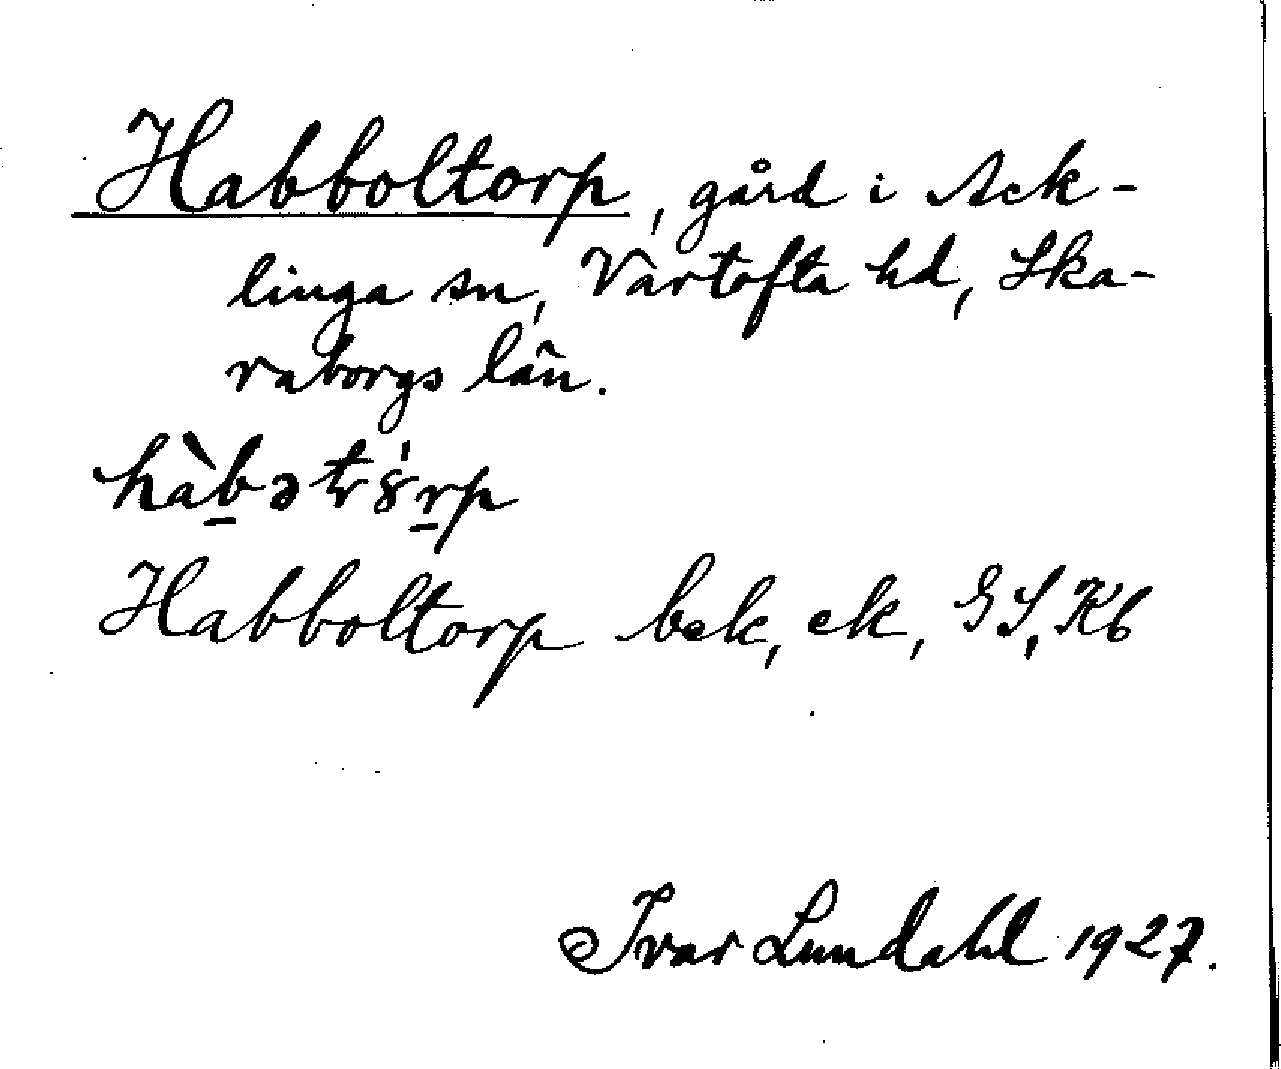 Habboltorp, gård i Ack-
linga sn, Vartofta hd, Ska-
raborgs län.
hàbətrp
Habboltorp bek, ek, GS, Kb
Ivar Lundahl 1927.